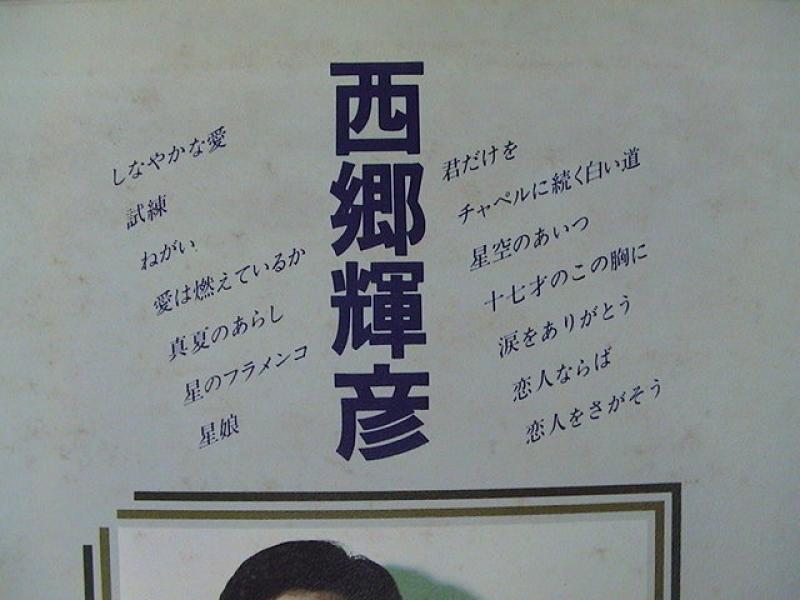 西郷輝彦
君だけを
チャペルに続く白い道
星空のあいつ
十七才のこの胸に
涙をありがとう
恋人ならば
恋人をさがそう
しなやかな愛
試練
ねがい
愛は燃えているか
真夏のあらし
星のフラメンコ
星娘